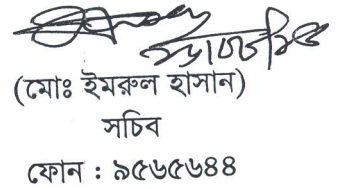 (মোঃ ইমরুল হাসান)
সচিব
ফোন : ৯৫৬৫৬৪৪